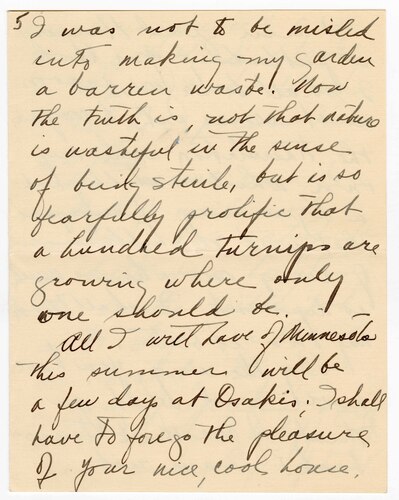 5 I was not to be misled
into making my garden
a barren waste. Now
the truth is, not that nature
is wasteful in the sense
of being sterile, but is so
fearfully prolific that
a hundred turnips are
growing where only
one should be.
All I will have of Minnesota
this summer will be
a few days at Osakis. I shall
have to forego the pleasure
of your nice, cool house.